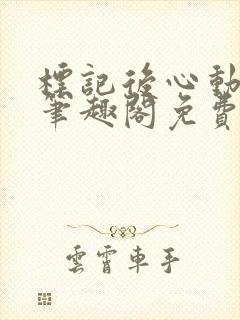 標記後心動
筆趣閣免費
雲霄車手